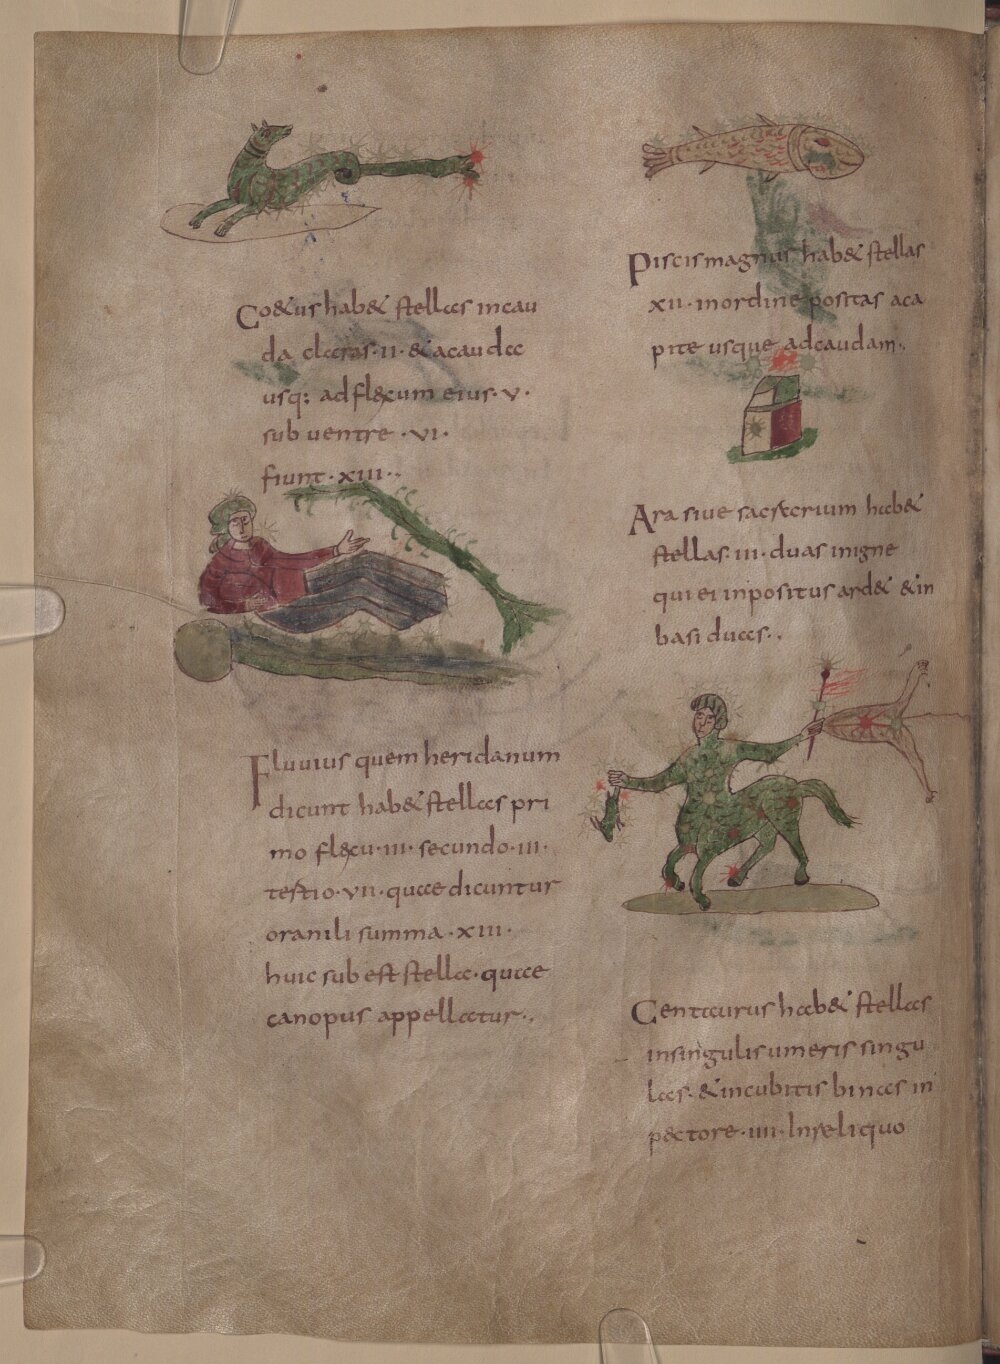 Coetus habet stellas incau
da claras·ii· & acauda
usq: adflexum eius·v·
sub ventre·vi·
fiunt·xiii··
Fluvius quem heridanum
dicunt habet stellas pri
mo flexu·iii·secundo·iii·
tertio·vii·quae dicuntur
oranili summa·xiii·
huic subest stella·quae
canopus appellatur·.
Piscis magnus habet stellas
xii·inordine positas aca
pite usque adcaudam·.
Ara sive sacrarium habet
stellas·iii·duas inigne
qui ei inpositus ardet &in
basi duas·.
Centaurus habet stellas
insingulis umeris singu
las·&incubitis binas in
pectore·iiii·Inreliquo